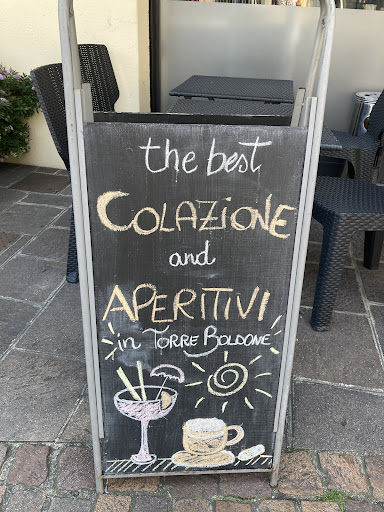 the best
COLAZIONE
and
APERITIVI
in TORRE BOLDONE